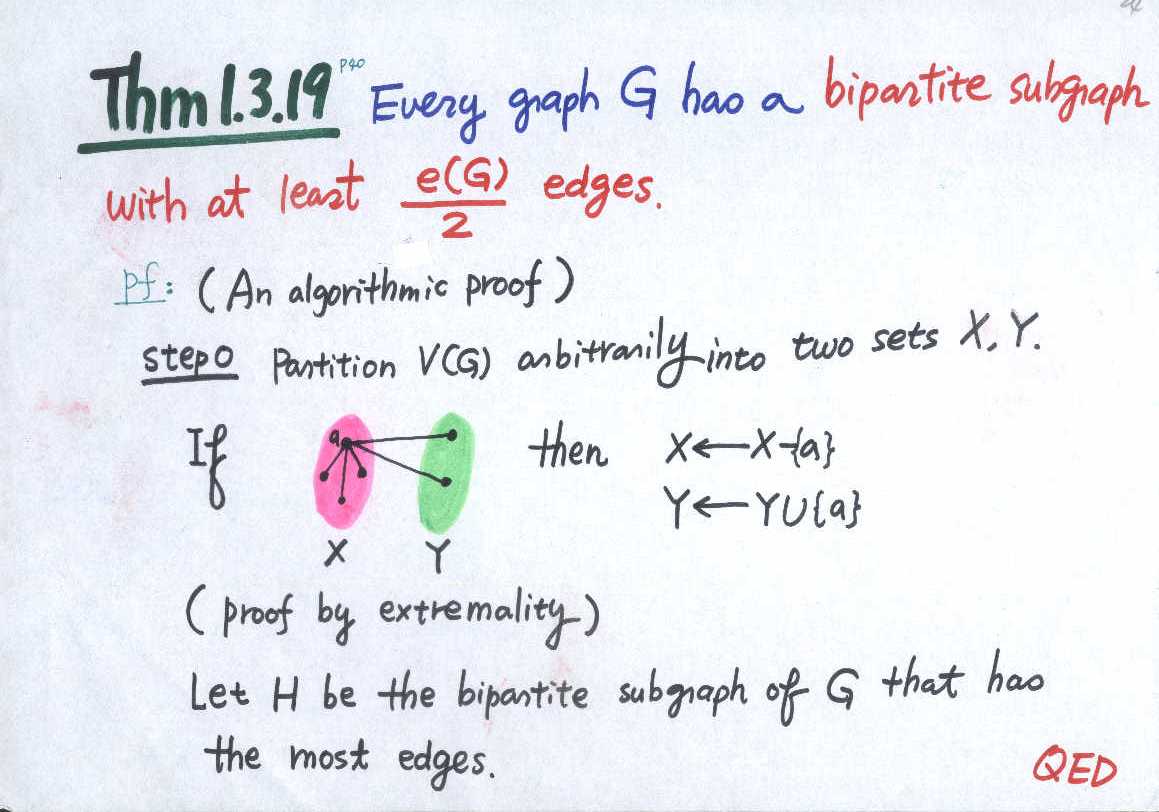 Thm 1.3.19 P40 Every graph G has a bipartite subgraph
with at least e(G)/2 edges.
pf: (An algorithmic proof)
step 0 Partition V(G) arbitrarily into two sets X, Y.
If a then X←X-{a}
Y←Y∪{a}
X Y
(proof by extremality)
Let H be the bipartite subgraph of G that has
the most edges.
QED